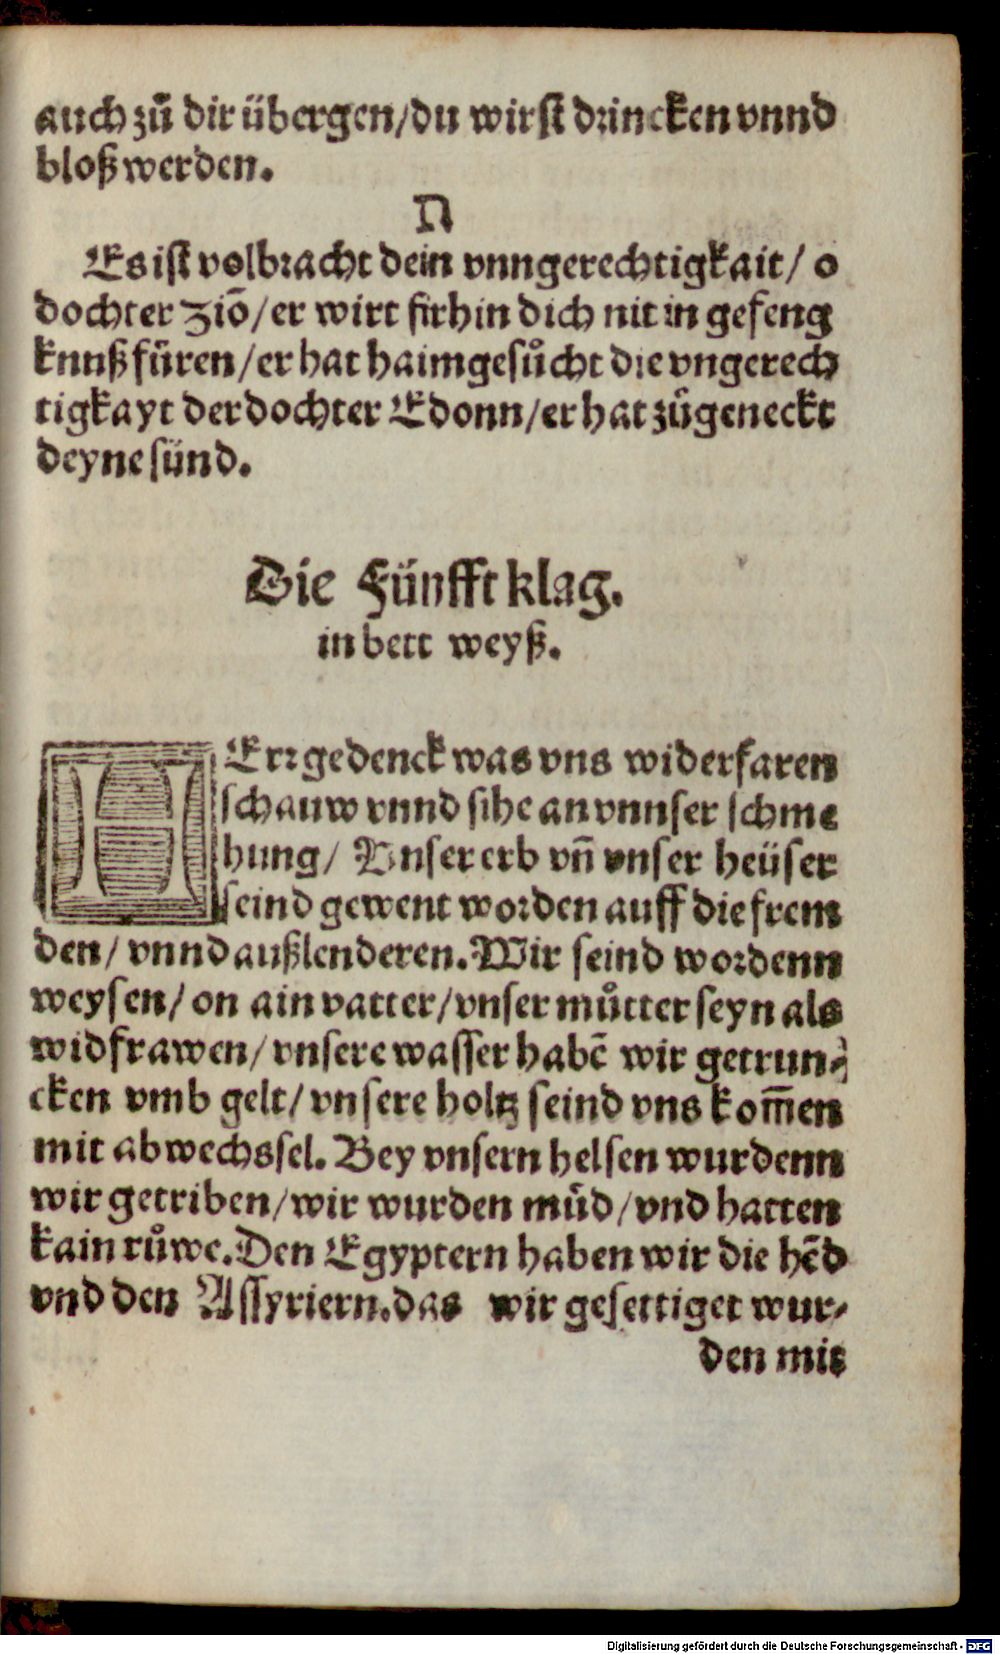 auch zů dir übergen/du wirst drincken vnnd
bloß werden.
ת
Es ist volbracht dein vnngerechtigkait/ o
dochter Ziō/er wirt firhin dich nit in gefeng
knnß füren/er hat haimgesůcht die vngerech
tigkayt der dochter Edonn/er hat zůgeneckt
deyne sünd.
Die Fünfft klag.
in bett weyß.
HErr gedenck was vns widerfaren
schauw vnnd sihe an vnnser schme
hung/ Vnser erb vñ vnser heüser
seind gewent worden auff die frem
den/ vnnd außlenderen. Wir seind wordenn
weysen/ on ain vatter/vnser můtter seyn als
widfrawen/vnsere wasser habē wir getrun-
cken vmb gelt/vnsere holtz seind vns kom̃en
mit abwechssel. Bey vnsern helsen wurdenn
wir getriben/wir wurden müd/vnd hatten
kain růwe. Den Egyptern haben wir die hēd
vnd den Assyriern.das wir gesettiget wur-
den mit
Digitalisierung gefördert durch die Deutsche Forschungsgemeinschaft - DFG